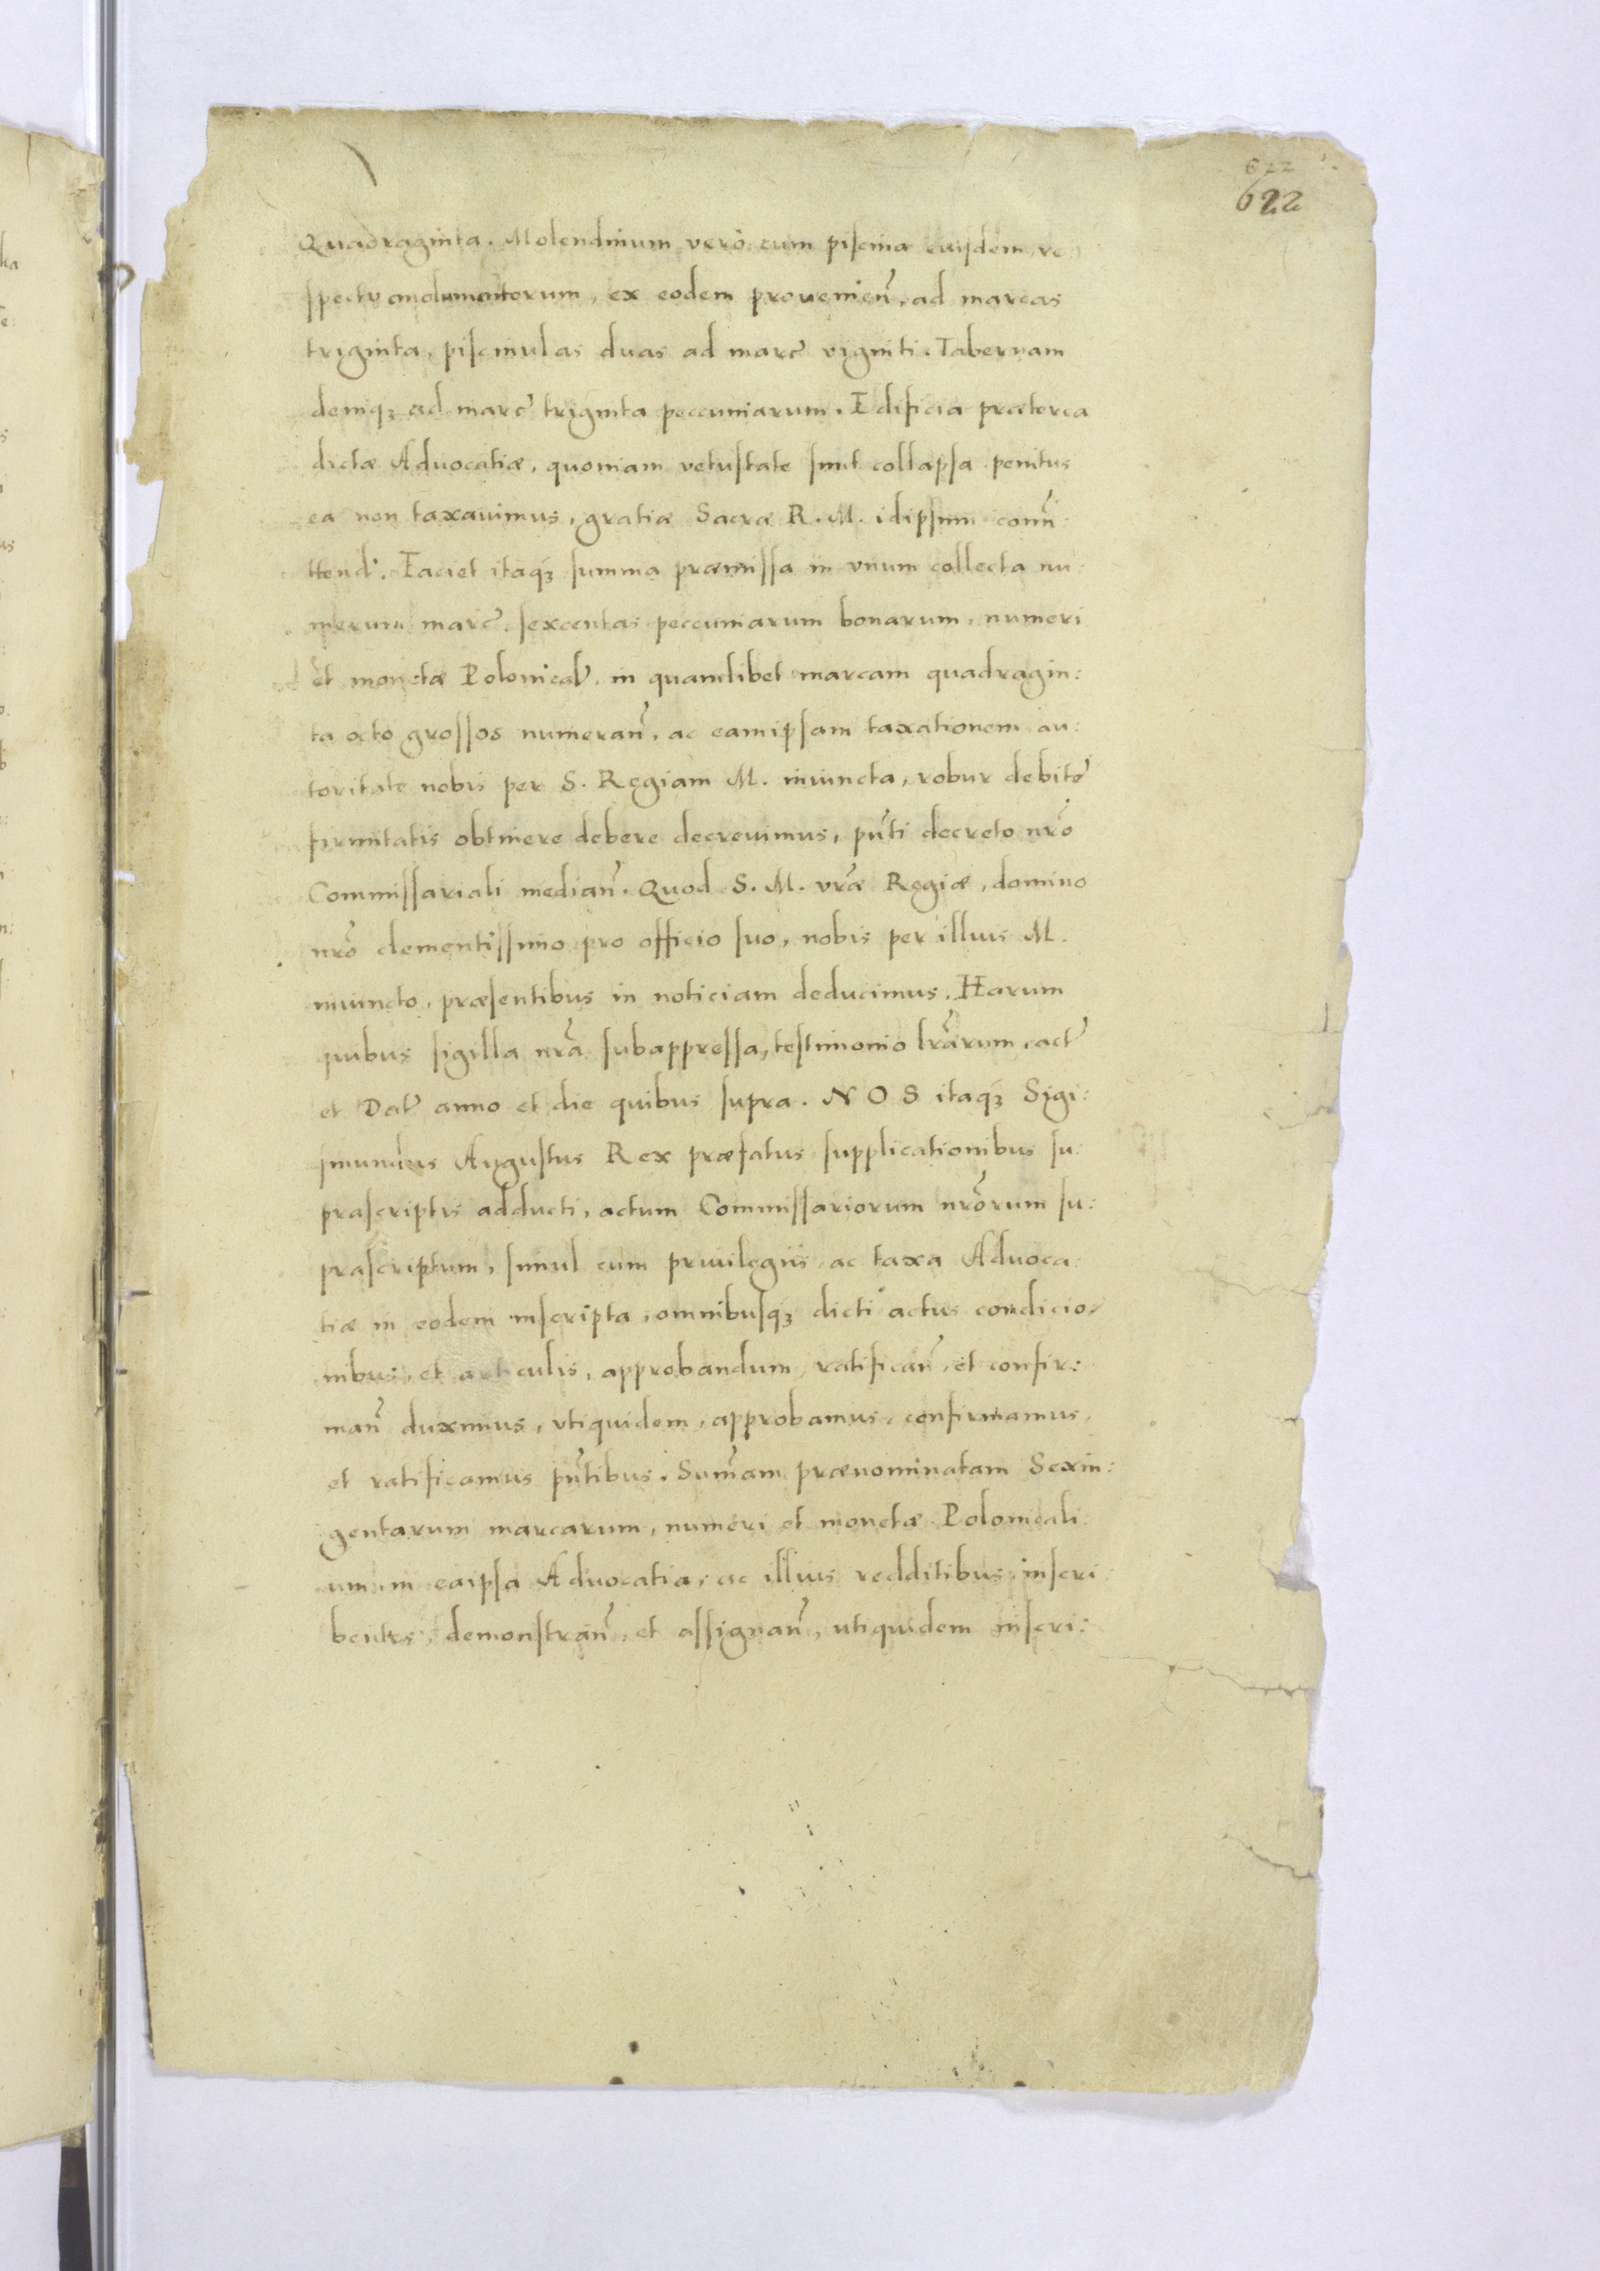 622
622
Quadraginta. Molendinum vero cum piscina eiusdem re
spectu emolumentorum, ex eodem provenien̄, ad marcas
triginta, piscinulas duas ad marc̄ viginti. Tabernam
deniqꝫ ad marc̄ triginta peccuniarum. Edificia præterea
dictæ Advocatiæ, quoniam vetustate sunt collapsa penitus
ea non taxavimus, gratiæ Sacræ R. M. idipsum com̄i
ttend. Faciet itaqꝫ summa præmissa in vnum collecta nu:
merum marc̄. sexcentas peccuniarum bonarum, numeri
et monetæ Polonical̄. in quamlibet marcam quadragin:
ta octo grossos numeran̄, ac eamipsam taxationem au:
toritate nobis per S. Regiam M. iniuncta, robur debitē
firmitatis obtinere debere decrevimus, pn̄ti decreto nr̄o
Commissariali median̄. Quod S. M. vrǣ Regiæ, domino
nr̄o clementissimo pro officio suo, nobis per illius M.
iniuncto, præsentibus in noticiam deducimus. Harum
quibus sigilla nr̄a subappressa, testimonio lr̄arum, act̄
et Dat̄ anno et die quibus supra. NOS itaqꝫ Sigi:
smundus Augustus Rex præfatus supplicationibus su
prascriptis adducti, actum Commissariorum nr̄orum su:
prascriptum, simul cum privilegiis ac taxa Advoca
tiæ in eodem inscripta, omnibusqꝫ dicti actus condicio
nibus, et articulis, approbandum, ratifican̄, et confir:
man̄ duximus, vtiquidem, approbamus, confirmamus,
et ratificamus pn̄tibus. Sum̄am prænominatam Sexin:
gentarum marcarum, numeri et monetæ Polonicali
um in eaipsa Advocatia, ac illius redditibus inscri
bentes, demonstran̄, et assignan̄, utiquidem inscri: